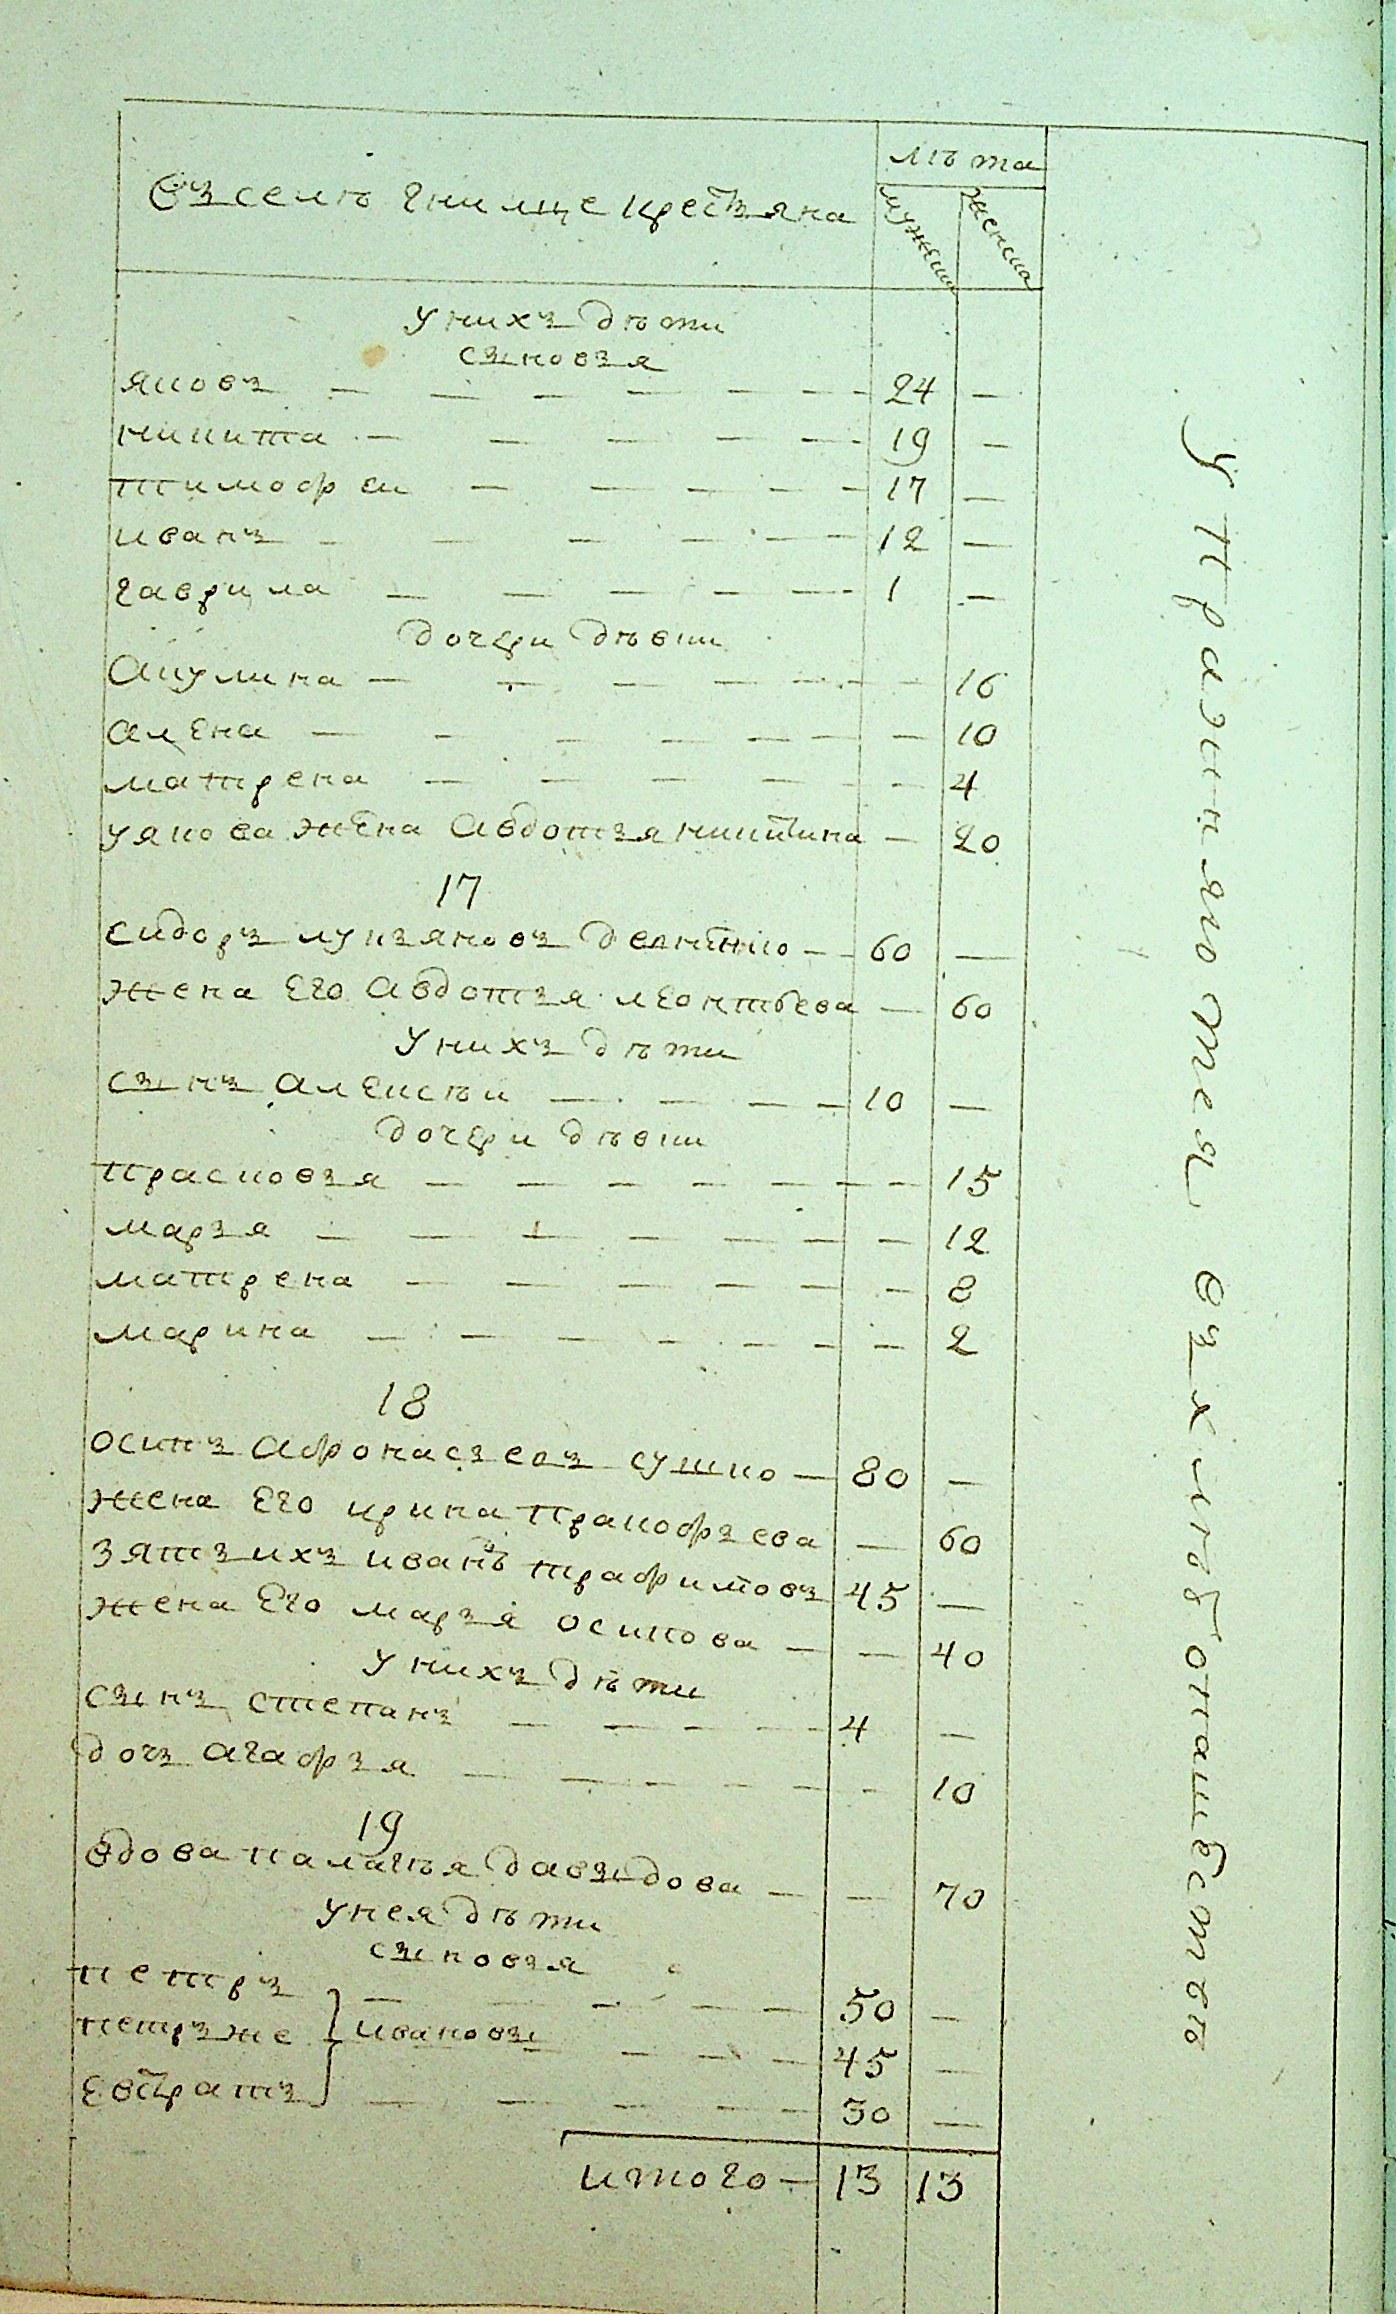 лѣта
въселѣ гнилще крестьяна
мужеш женска
унихъ дѣти
сыновья
яковъ — — — — — — 24 —
никита — — — — — 19 —
тимофеи — — — — — 17 —
иванъ — — — — — 12 —
гаврила — — — — — 1 —
дочери дѣвки
Акулина — — — — — — 16
алена — — — — — — — 10
матрена — — — — — 4
уякова жена Авдотья никитина — 20
17
сидоръ лукьяновъ — 60 —
жена Его Авдотья леонтьева — 60
унихъ дѣти
сынъ Алексѣи — — — — 10 —
дочери дѣвки
прасковья — — — — — — — 15
марья — — — — — — — 12
матрена — — — — — — 8
марина — — — — — — — 2
18
осипъ Афонасьевъ сушко — 80 —
жена Его ирина пракофьева — 60
зятьихъ иванъ трафимовъ 45 —
жена Его марья осипова — — 40
унихъ дѣти
сынъ степанъ — — — — 4 —
дочь агафья — — — — — — 10
19
вдова палагѣя давыдова — — 70
унея дѣти
сыновья
петръ — — — — — 50 —
петръже } ивановы — — — 45 —
Евстратъ — — — — — 30 —
итого — 13 13
упражняются въхлѣбопашествѣ